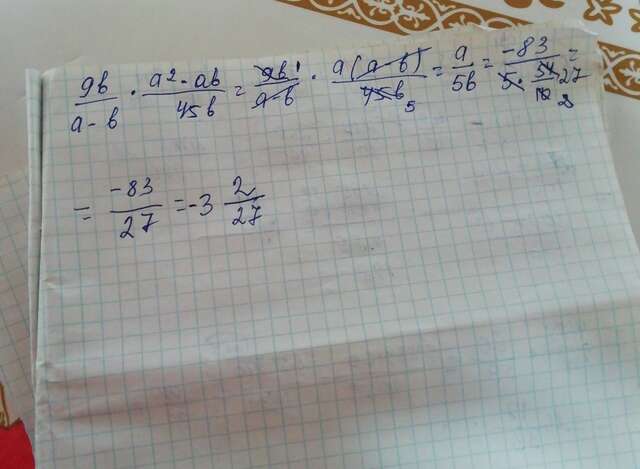 9b/(a - b) · (a² - ab)/(45b) = 9b/(a - b) · a(a - b)/(45b) = a/(5b) = -83/(5 · 5,4) =
= -83/27 = -3 2/27